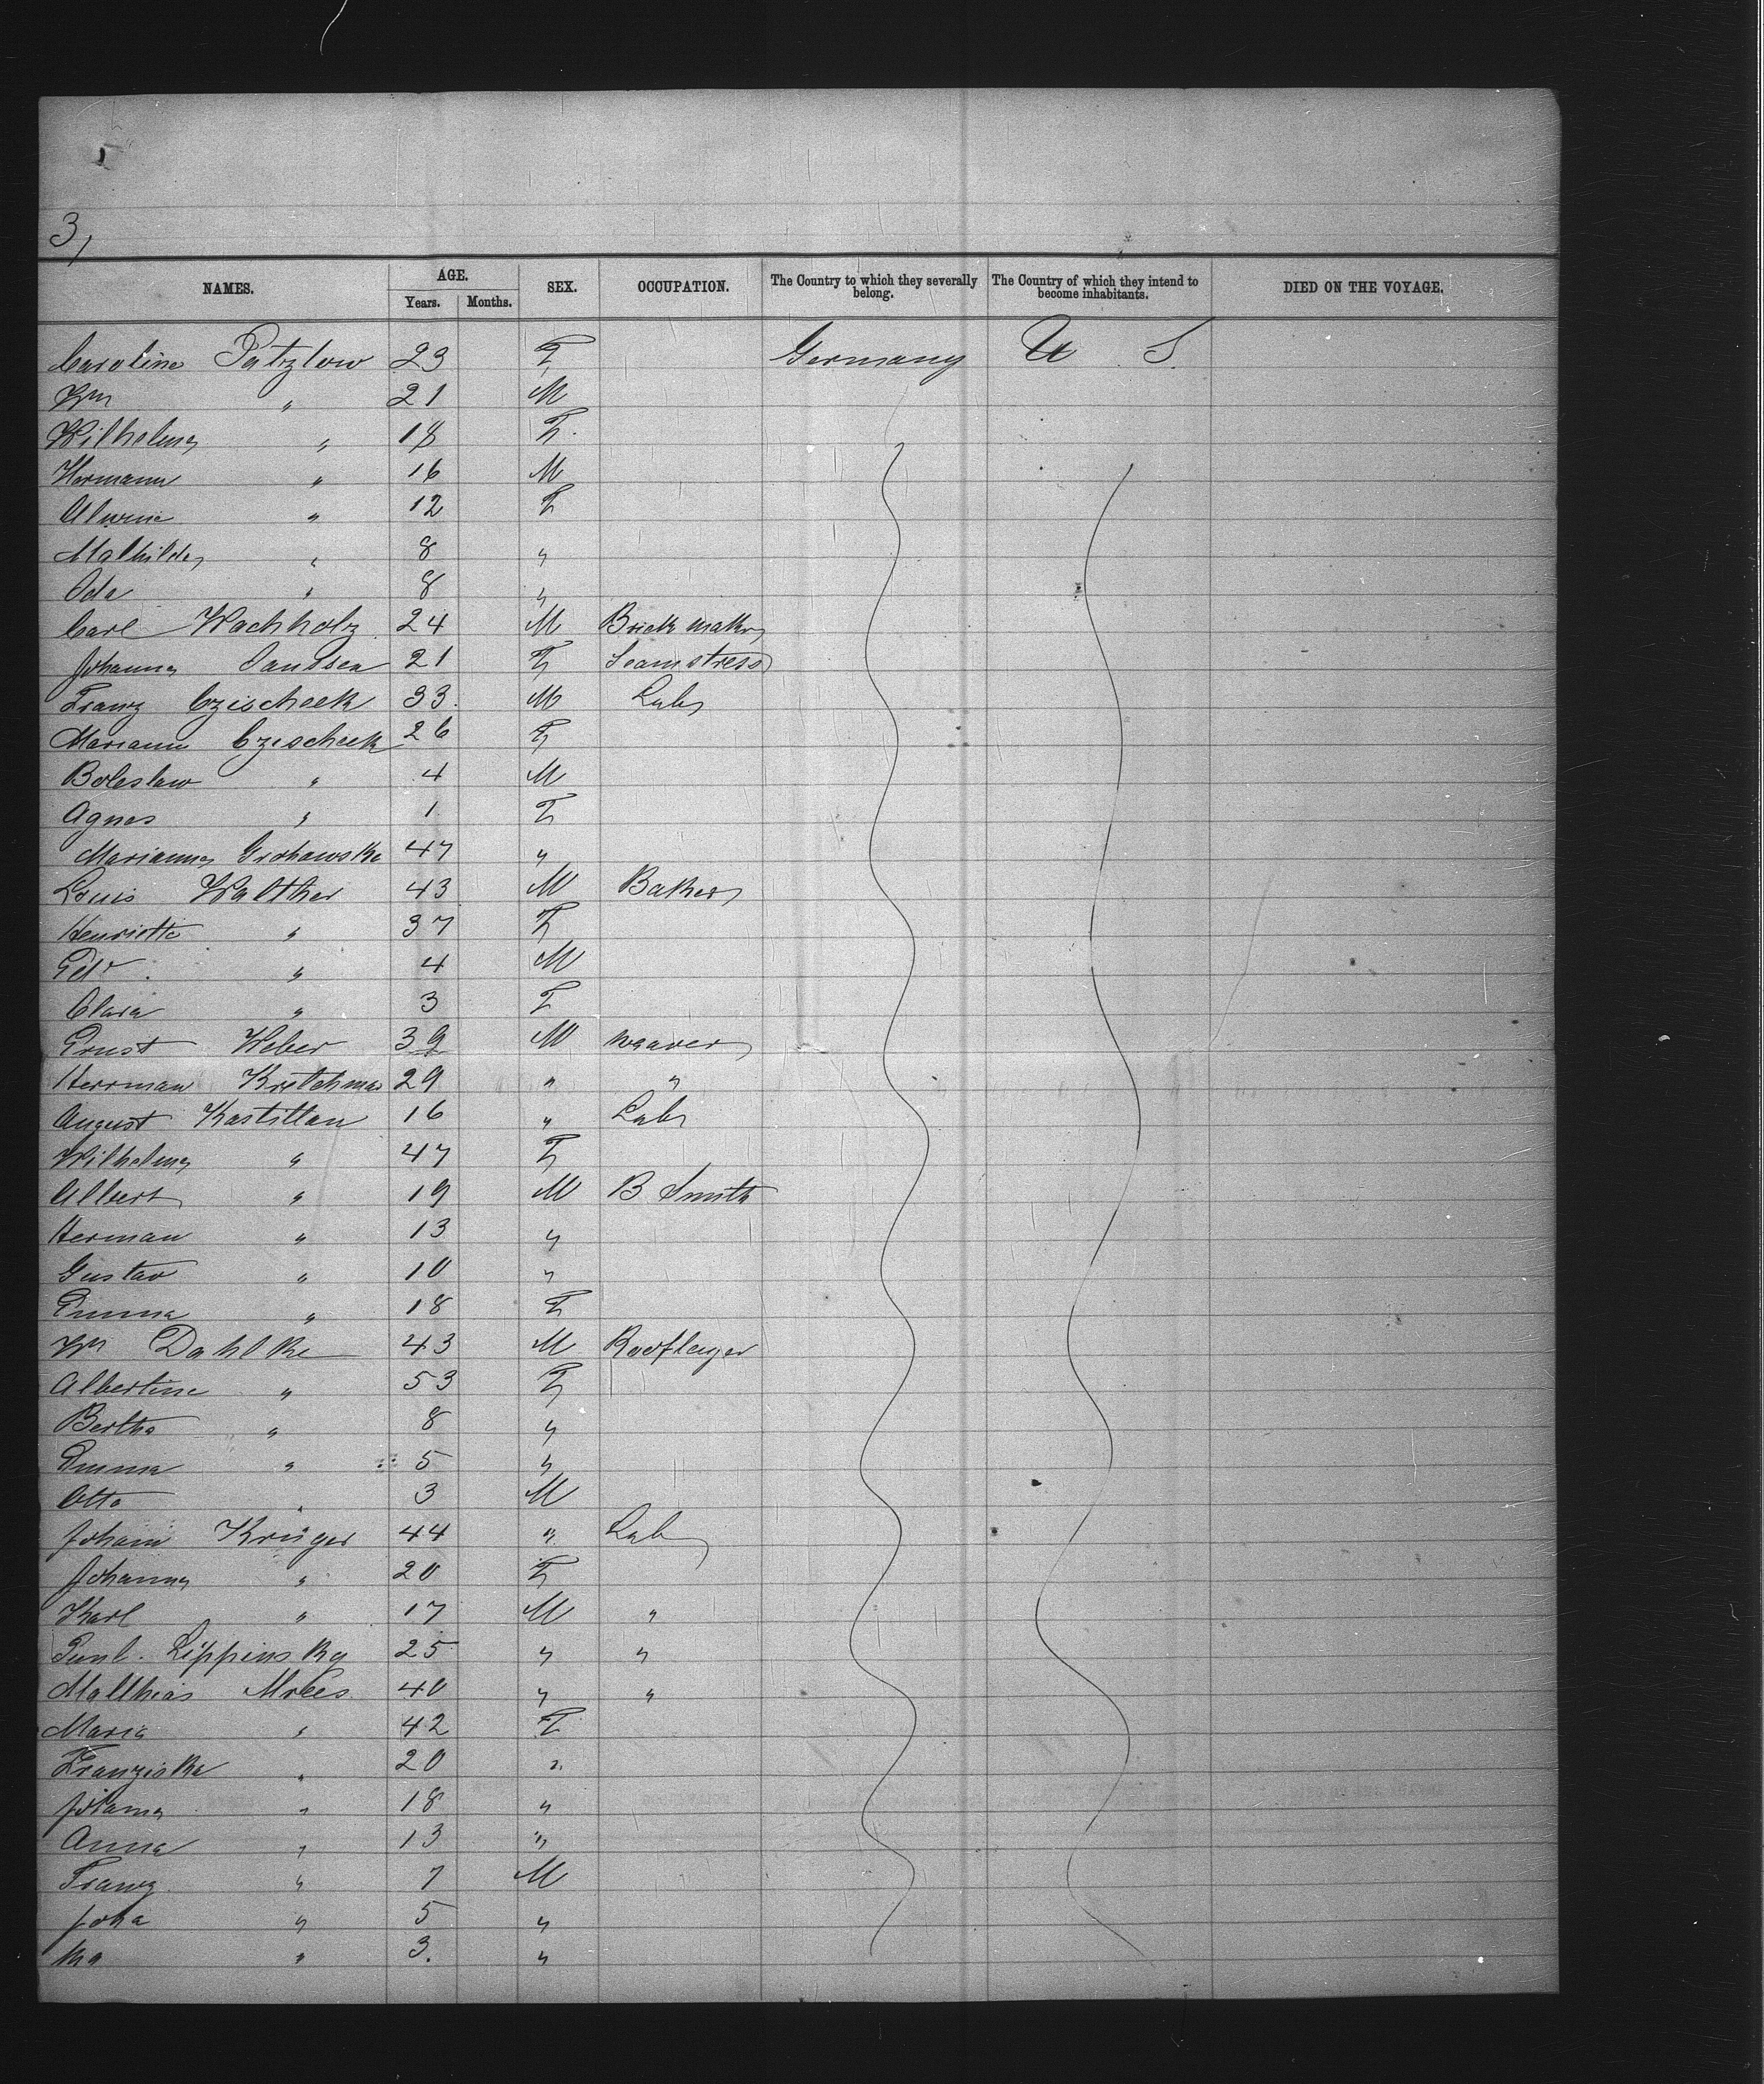 3,
NAMES. AGE. Years. Months. SEX. OCCUPATION. The Country to which they severally belong. The Country of which they intend to become inhabitants. DIED ON THE VOYAGE.
Caroline Patzlow 23 F Germany U S
Wm " 21 M
Wilhelma " 18 F
Hermann " 16 M
Alwine " 12 F
Mathilde " 8 "
Ida " 8 "
Carl Wachholz 24 M Brick maker
Johanna 21 F Seamstress
Franz Czischeck 33 M Labr
Mariann Czischeck 26 F
Boleslaw " 4 M
Agnes " 1 F
Marianna Grohowska 47 "
Louis Walther 43 M Baker
Henriette " 37 F
Edw " 4 M
Clara " 3 F
Ernst Weber 39 M weaver
Herrman Kretchmar 29 " "
August Kastillan 16 " Labr
Wilhelma " 47 F
Albert " 19 M B Smith
Herman " 13 "
Gustav " 10 "
Emma " 18 F
Wm Dahlke 43 M Rooflayer
Albertine " 53 F
Bertha " 8 "
Emma " 5 "
Otto " 3 M
Johann Krüger 44 " Lab
Johanna " 20 F
Karl " 17 M "
Lippinsky 25 " "
Matthias 40 " "
Maria " 42 F
Franziska " 20 "
" 18 "
Anna " 13 "
Franz " 7 M
" 5 "
" 3. "